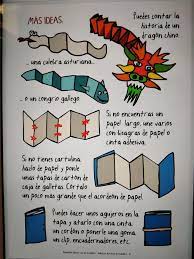 MÁS IDEAS.
Puedes contar la
historia de un
dragón chino.
... una culebra asturiana...
... o un congrio gallego
Si no encuentras un
papel largo, une varios
con bisagras de papel o
cinta adhesiva.
Si no tienes cartulina,
hazlo de papel y ponle
unas tapas de cartón de
caja de galletas. Córtalo
un poco más grande que el acordeón de papel.
Puedes hacer unos agujeros en la
tapa y atarlo con un cordón
o cinta de regalo o ponerle una goma,
un clip, encuadernadores, etc.